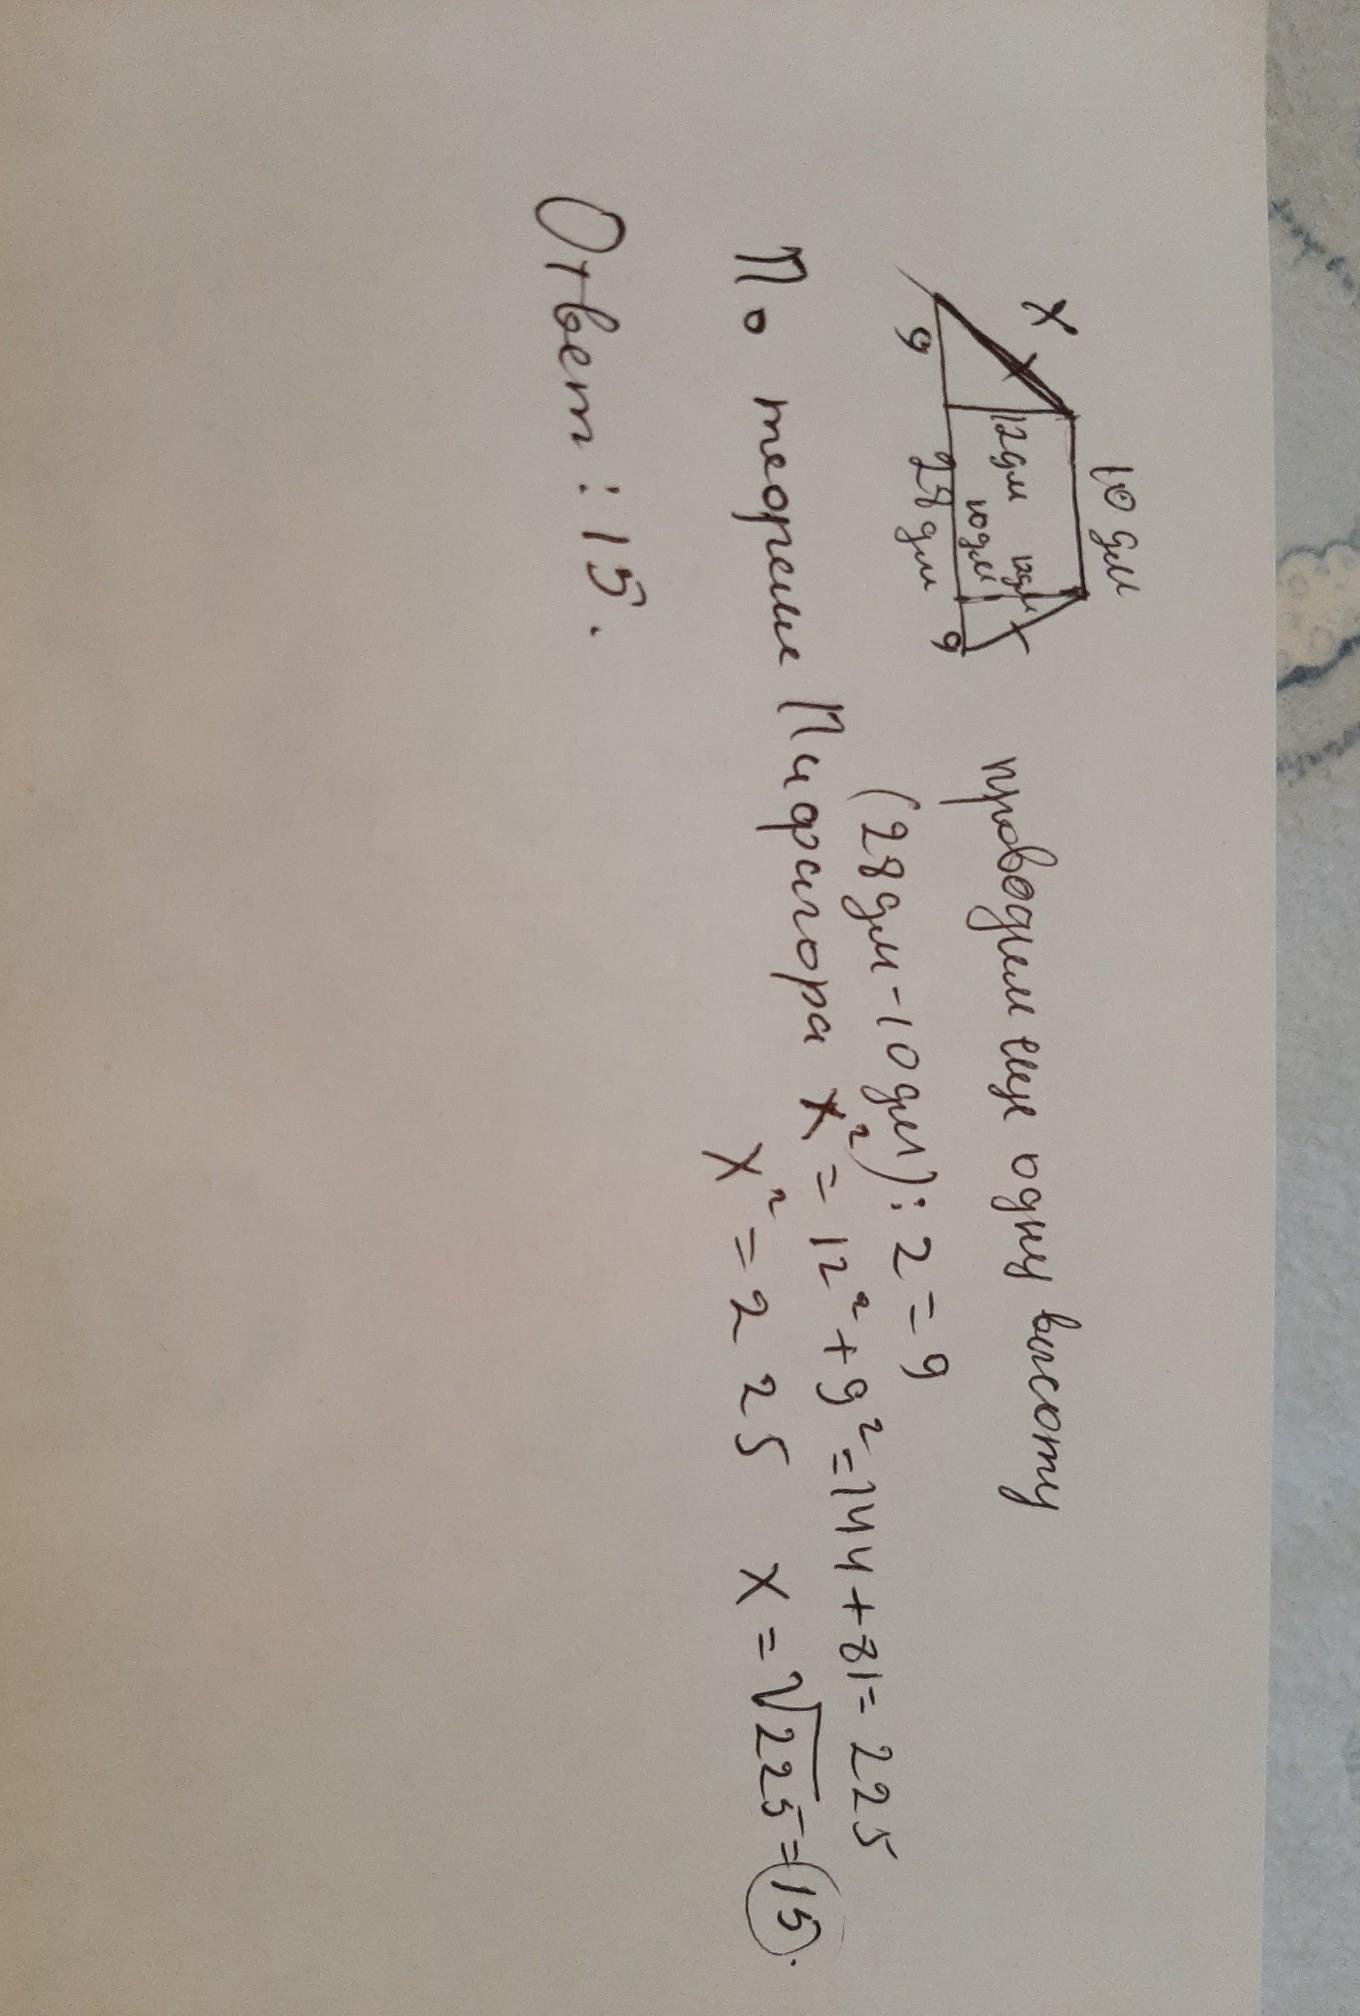 10 дм
X
X
12 дм
12 дм
X
10 дм
9
28 дм
9
проводим еще одну высоту
(28 дм - 10 дм) : 2 = 9
По теореме Пифагора x² = 12² + 9² = 144 + 81 = 225
x² = 225 x = √225 = 15.
Ответ: 15.